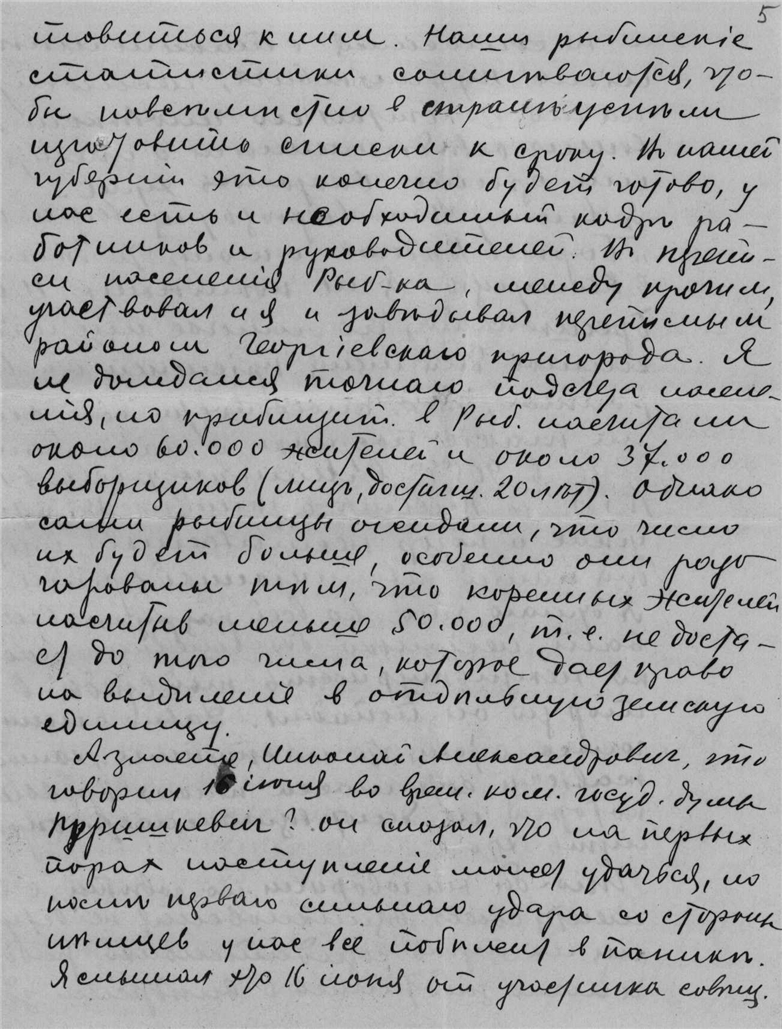 5
товиться к ним. Наши рыбинскіе
статистики сомнѣваются, что-
бы повсемѣстно в странѣ успѣли
изготовить списки к сроку. Въ нашей
губерніи это конечно будет готово, у
нас есть и необходимый кадръ ра-
ботников и руководителей. Въ перепи-
си населенія Рыб-ка, между прочим,
участвовал и я и завѣдывал переписным
районом Георгіевскаго пригорода. Я
не дождался точнаго подсчета населе-
нія, но приблизит. в Рыб. насчитали
около 60.000 жителей и около 37.000
выборщиков (лицъ, достигш. 20 лѣт). Однако
сами рыбинцы ожидали, что число
их будет больше, особенно они разо-
чарованы тѣм, что коренных жителей
насчитыв меньше 50.000, т.е. не доста-
ет до того числа, которое дает право
на выдѣленіе в отдѣльную земскую
единицу.
А знаете, Николай Александрович, что
говорил 16 іюня во врем. ком. госуд. думы
Пуришкевич? он сказал, что на первых
порах наступленіе может удаться, но
послѣ перваго сильнаго удара со стороны
нѣмцев у нас всѣ побѣгут в паникѣ.
Я слышал это 16 іюня от участника совѣщ.